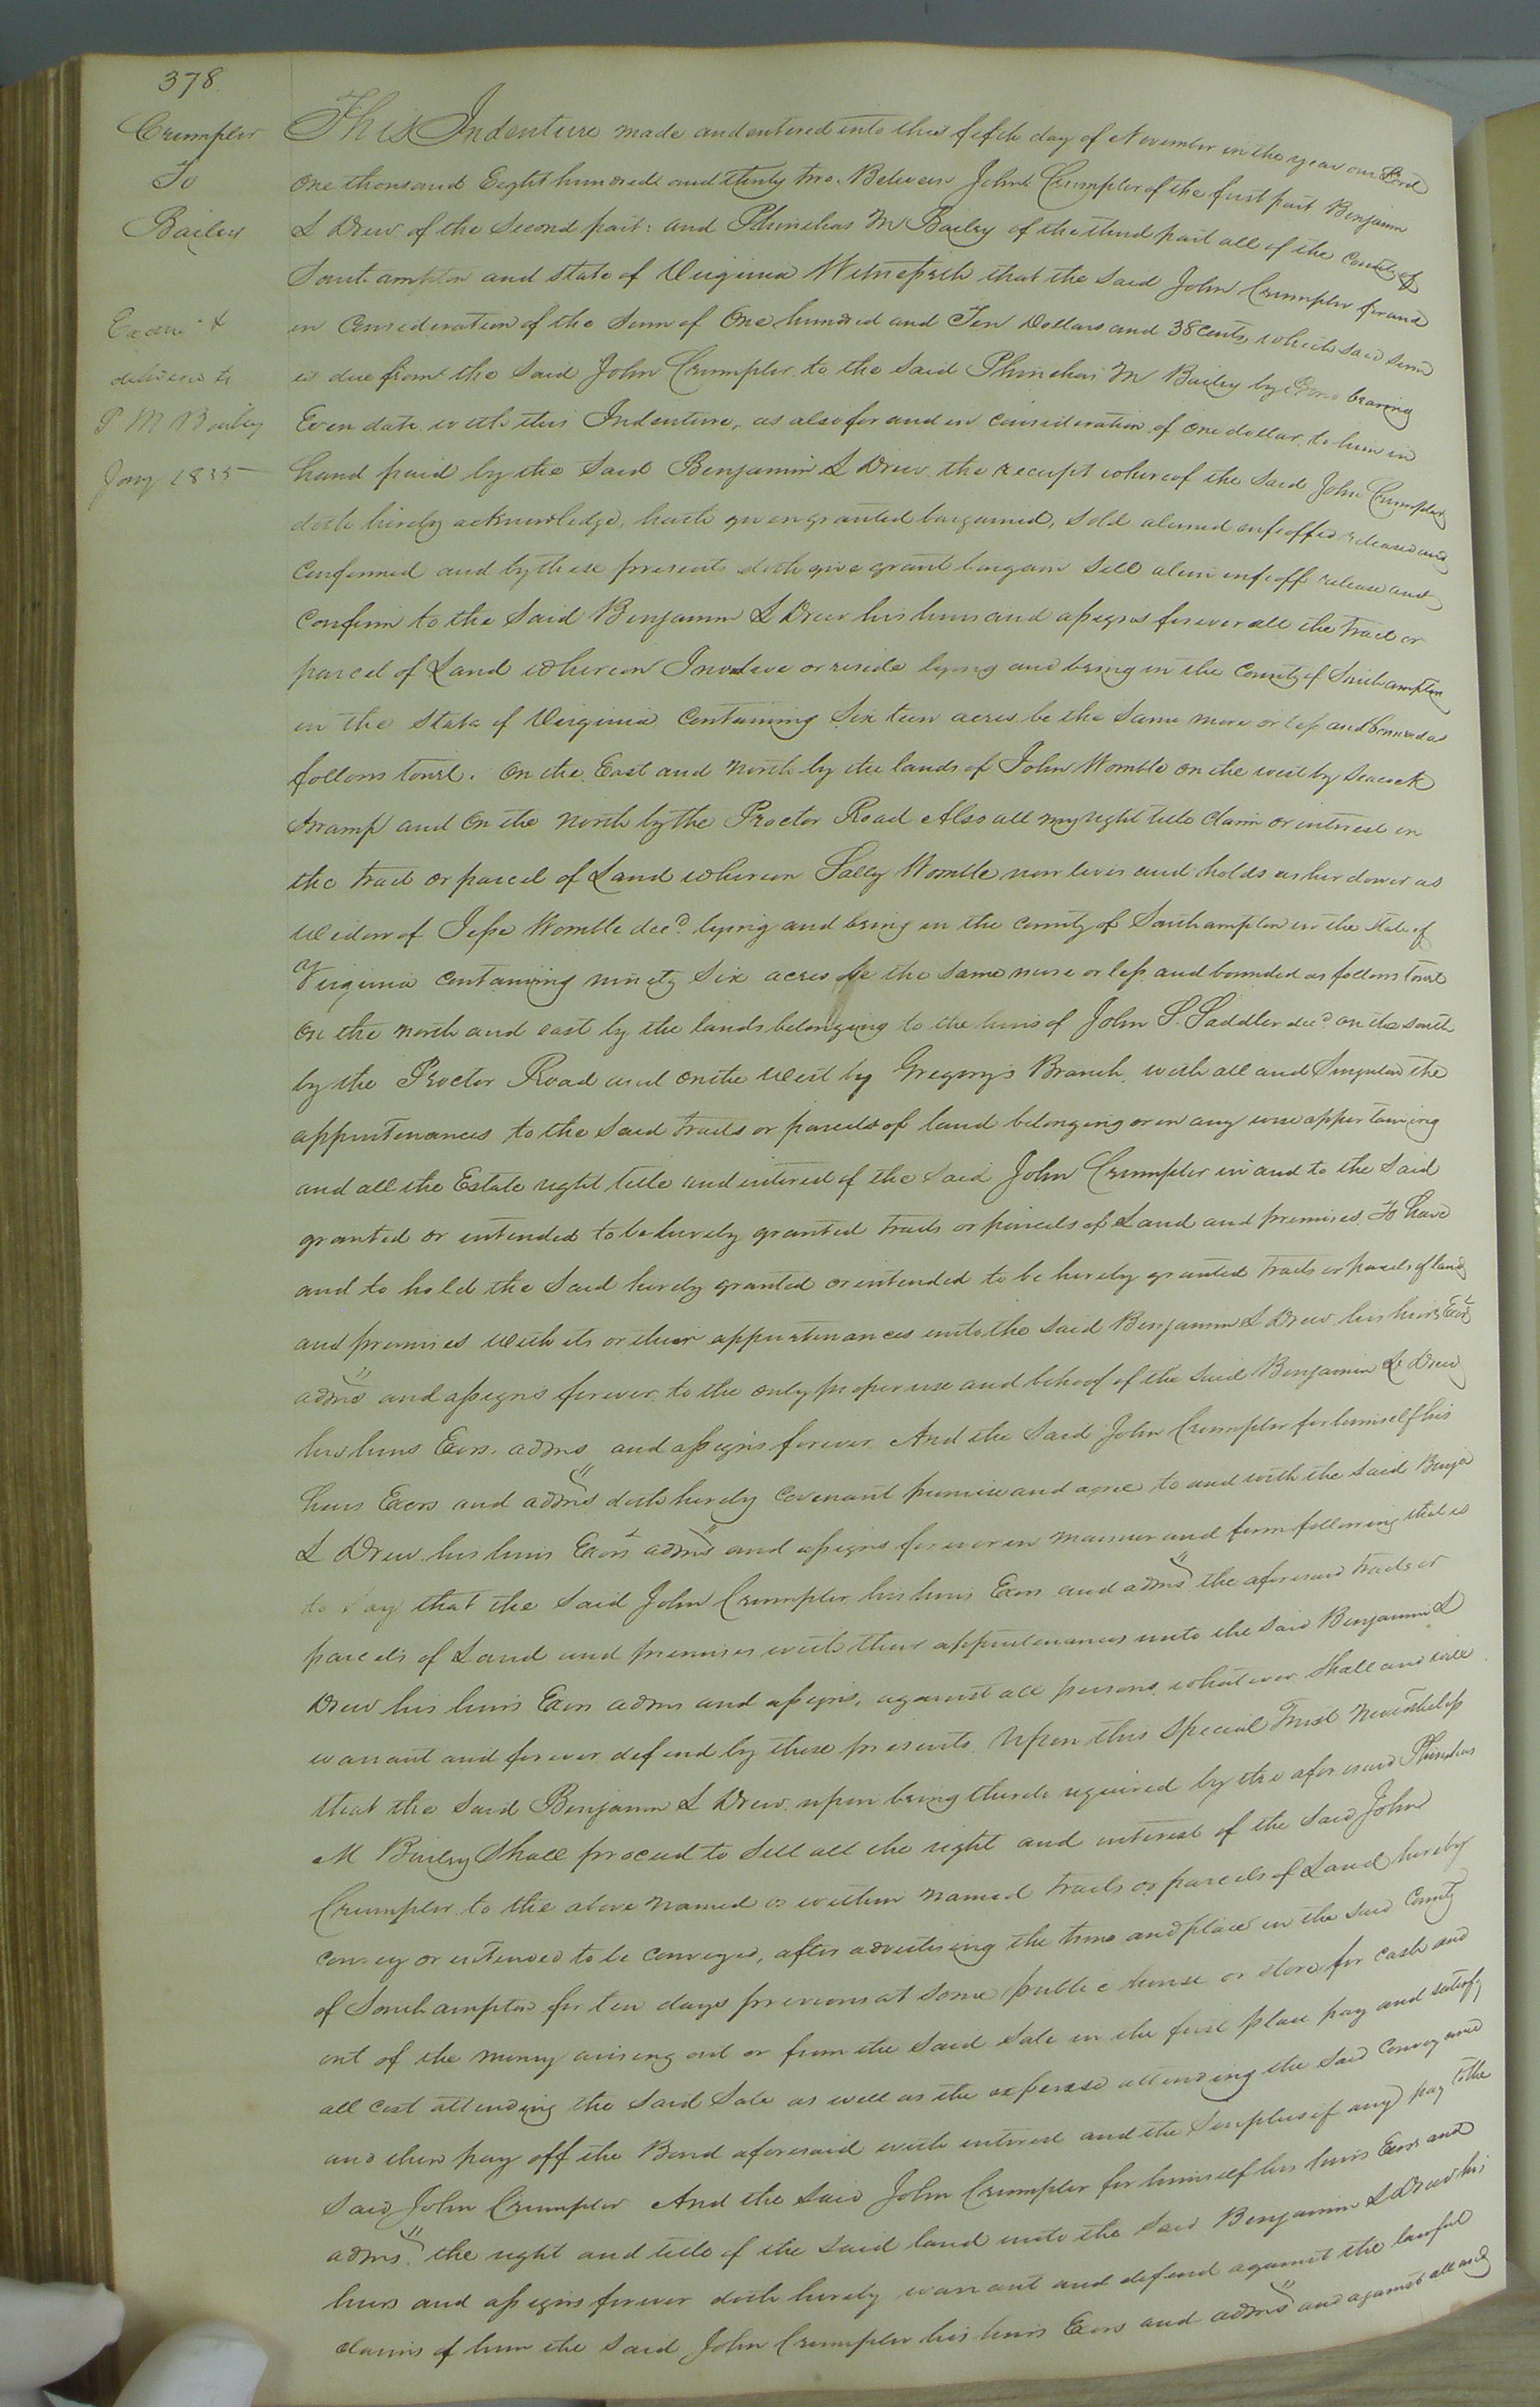 378.
Crumpler
To
Bailey
Exam.d &
delivered to
P M Bailey
Jany 1835
This Indenture made and entered into this fifth day of November in the year our Lord
One thousand Eight hundred and thirty two. Between John Crumpler of the first part Benjamin
L Drew of the Second part: and Phinehas M Bailey of the third part all of the County of
Southampton and State of Virginia Witnesseth that the Said John Crumpler for and
in Consideration of the Sum of One hundred and Ten Dollars and 38 Cents, which said sum
is due from the Said John Crumpler to the Said Phinehas M Bailey by Bond bearing
Even date with this Indenture, as also for and in consideration of one dollar to him in
hand paid by the Said Benjamin L Drew the receipt whereof the Said John Crumpler
doth hereby acknowledge, hath given granted bargained, Sold aliened enfeoffed released and
Confirmed and by these presents doth give grant bargain Sell alien enfeoff release and
Confirm to the Said Benjamin L Drew his heirs and assigns forever all the tract or
parcel of Land whereon I now live or reside lying and being in the County of Southampton
in the State of Virginia Containing Six teen acres be the Same more or less and bounded as
follows towit. On the East and North by the lands of John Womble on the west by Seacock
Swamp and On the North by the Proctor Road Also all my right title Claim or interest in
the tract or parcel of Land whereon Sally Womble now lives and holds as her dower as
Widow of Jesse Womble decd. lying and being in the County of Southampton in the State of
Virginia Containing ninety Six acres be the Same more or less and bounded as follows towit
On the north and east by the lands belonging to the heirs of John S. Saddler decd on the south
by the Proctor Road and on the West by Gregory's Branch, with all and Singular the
appurtenances to the Said tracts or parcels of land belonging or in any wise appertaining
and all the Estate right title and interest of the Said John Crumpler in and to the Said
granted or intended to be hereby granted tracts or parcels of Land and premises, To have
and to hold the Said hereby granted or intended to be hereby granted tracts or parcels of land
and premises with its or their appurtenances unto the Said Benjamin L Drew, his heirs Exors
adms and assigns forever. to the only proper use and behoof of the Said Benjamin L Drew
his heirs Exors. adms and assigns forever. And the Said John Crumpler for himself his
heirs Exors and adms doth hereby Covenant promise and agree to and with the Said Benja
L Drew his heirs Exors adms and assigns forever in manner and form following that is
to Say that the Said John Crumpler his heirs Exors and adms the aforesaid tracts or
parcels of Land and premises with their appurtenances unto the Said Benjamin L
Drew his heirs Exors adms and assigns, against all persons whatever Shall and will
warrant and forever defend by these presents. Upon this Special Trust Nevertheless
that the Said Benjamin L Drew upon being thereto required by the aforesaid Phinehas
M Bailey Shall proceed to Sell all the right and interest of the Said John
Crumpler to the above named or within named tracts or parcels of Land hereby
convey or intended to be conveyed, after advertising the time and place in the said County
of Southampton for ten days previous at some public house or store for cash and
out of the money arising out or from the Said Sale in the first place pay and satisfy
all cost attending the Said Sale as well as the expense attending the Said Conveyance
and then pay off the Bond aforesaid with interest and the Surplus if any pay to the
Said John Crumpler And the Said John Crumpler for himself his heirs Exors and
adms. the right and title of the Said land unto the Said Benjamin L Drew his
heirs and assigns forever doth hereby warrant and defend against the lawful
claims of him the Said John Crumpler his heirs Exors and adms and against all and